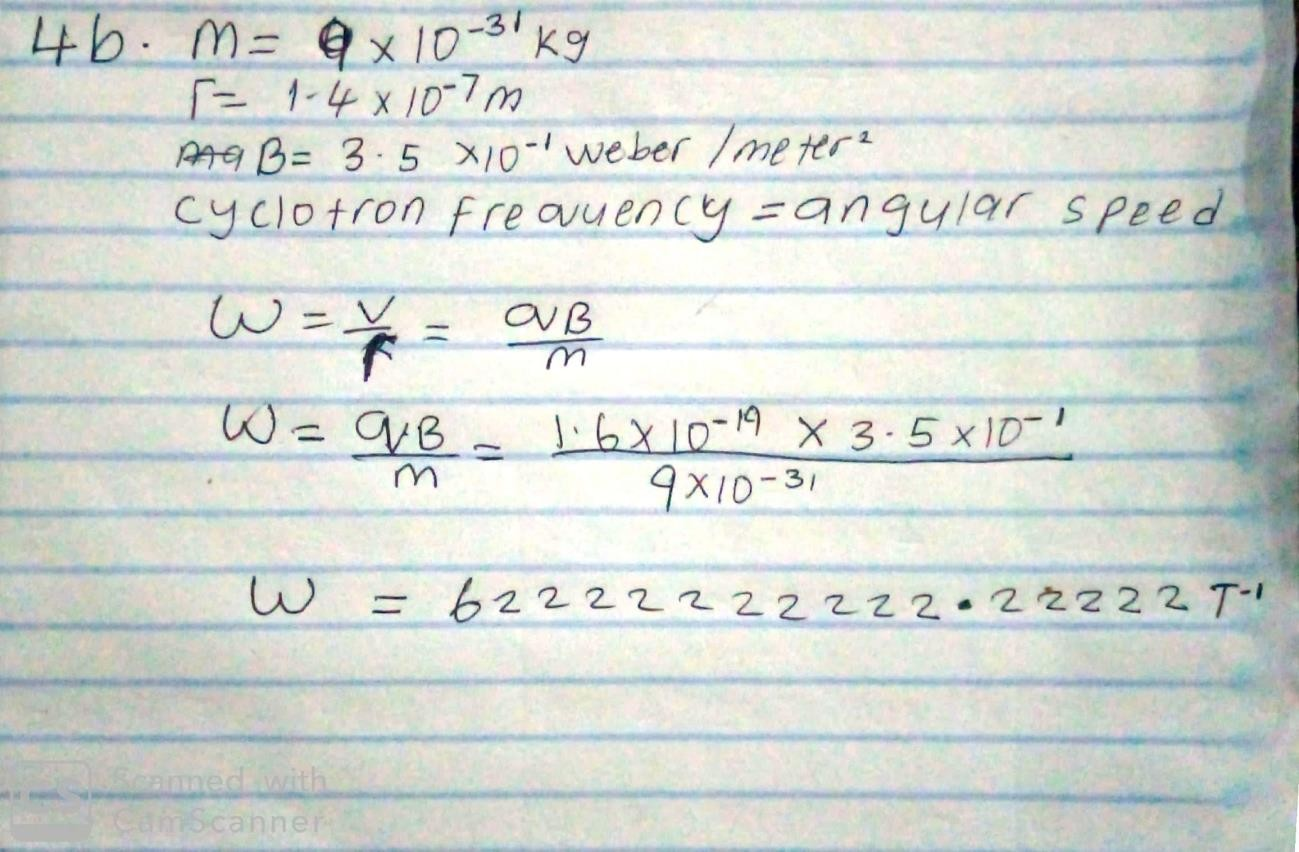 4b. m = 9 x 10^-31 kg
r = 1.4 x 10^-7 m
B = 3.5 x10^-1 weber /meter²
cyclotron frequency = angular speed
W = v/r = qB/m
W = qB/m = 1.6 x 10^-19 x 3.5 x10^-1 / 9x10^-31
W = 62222222222.22222 T^-1
Scanned with
CamScanner